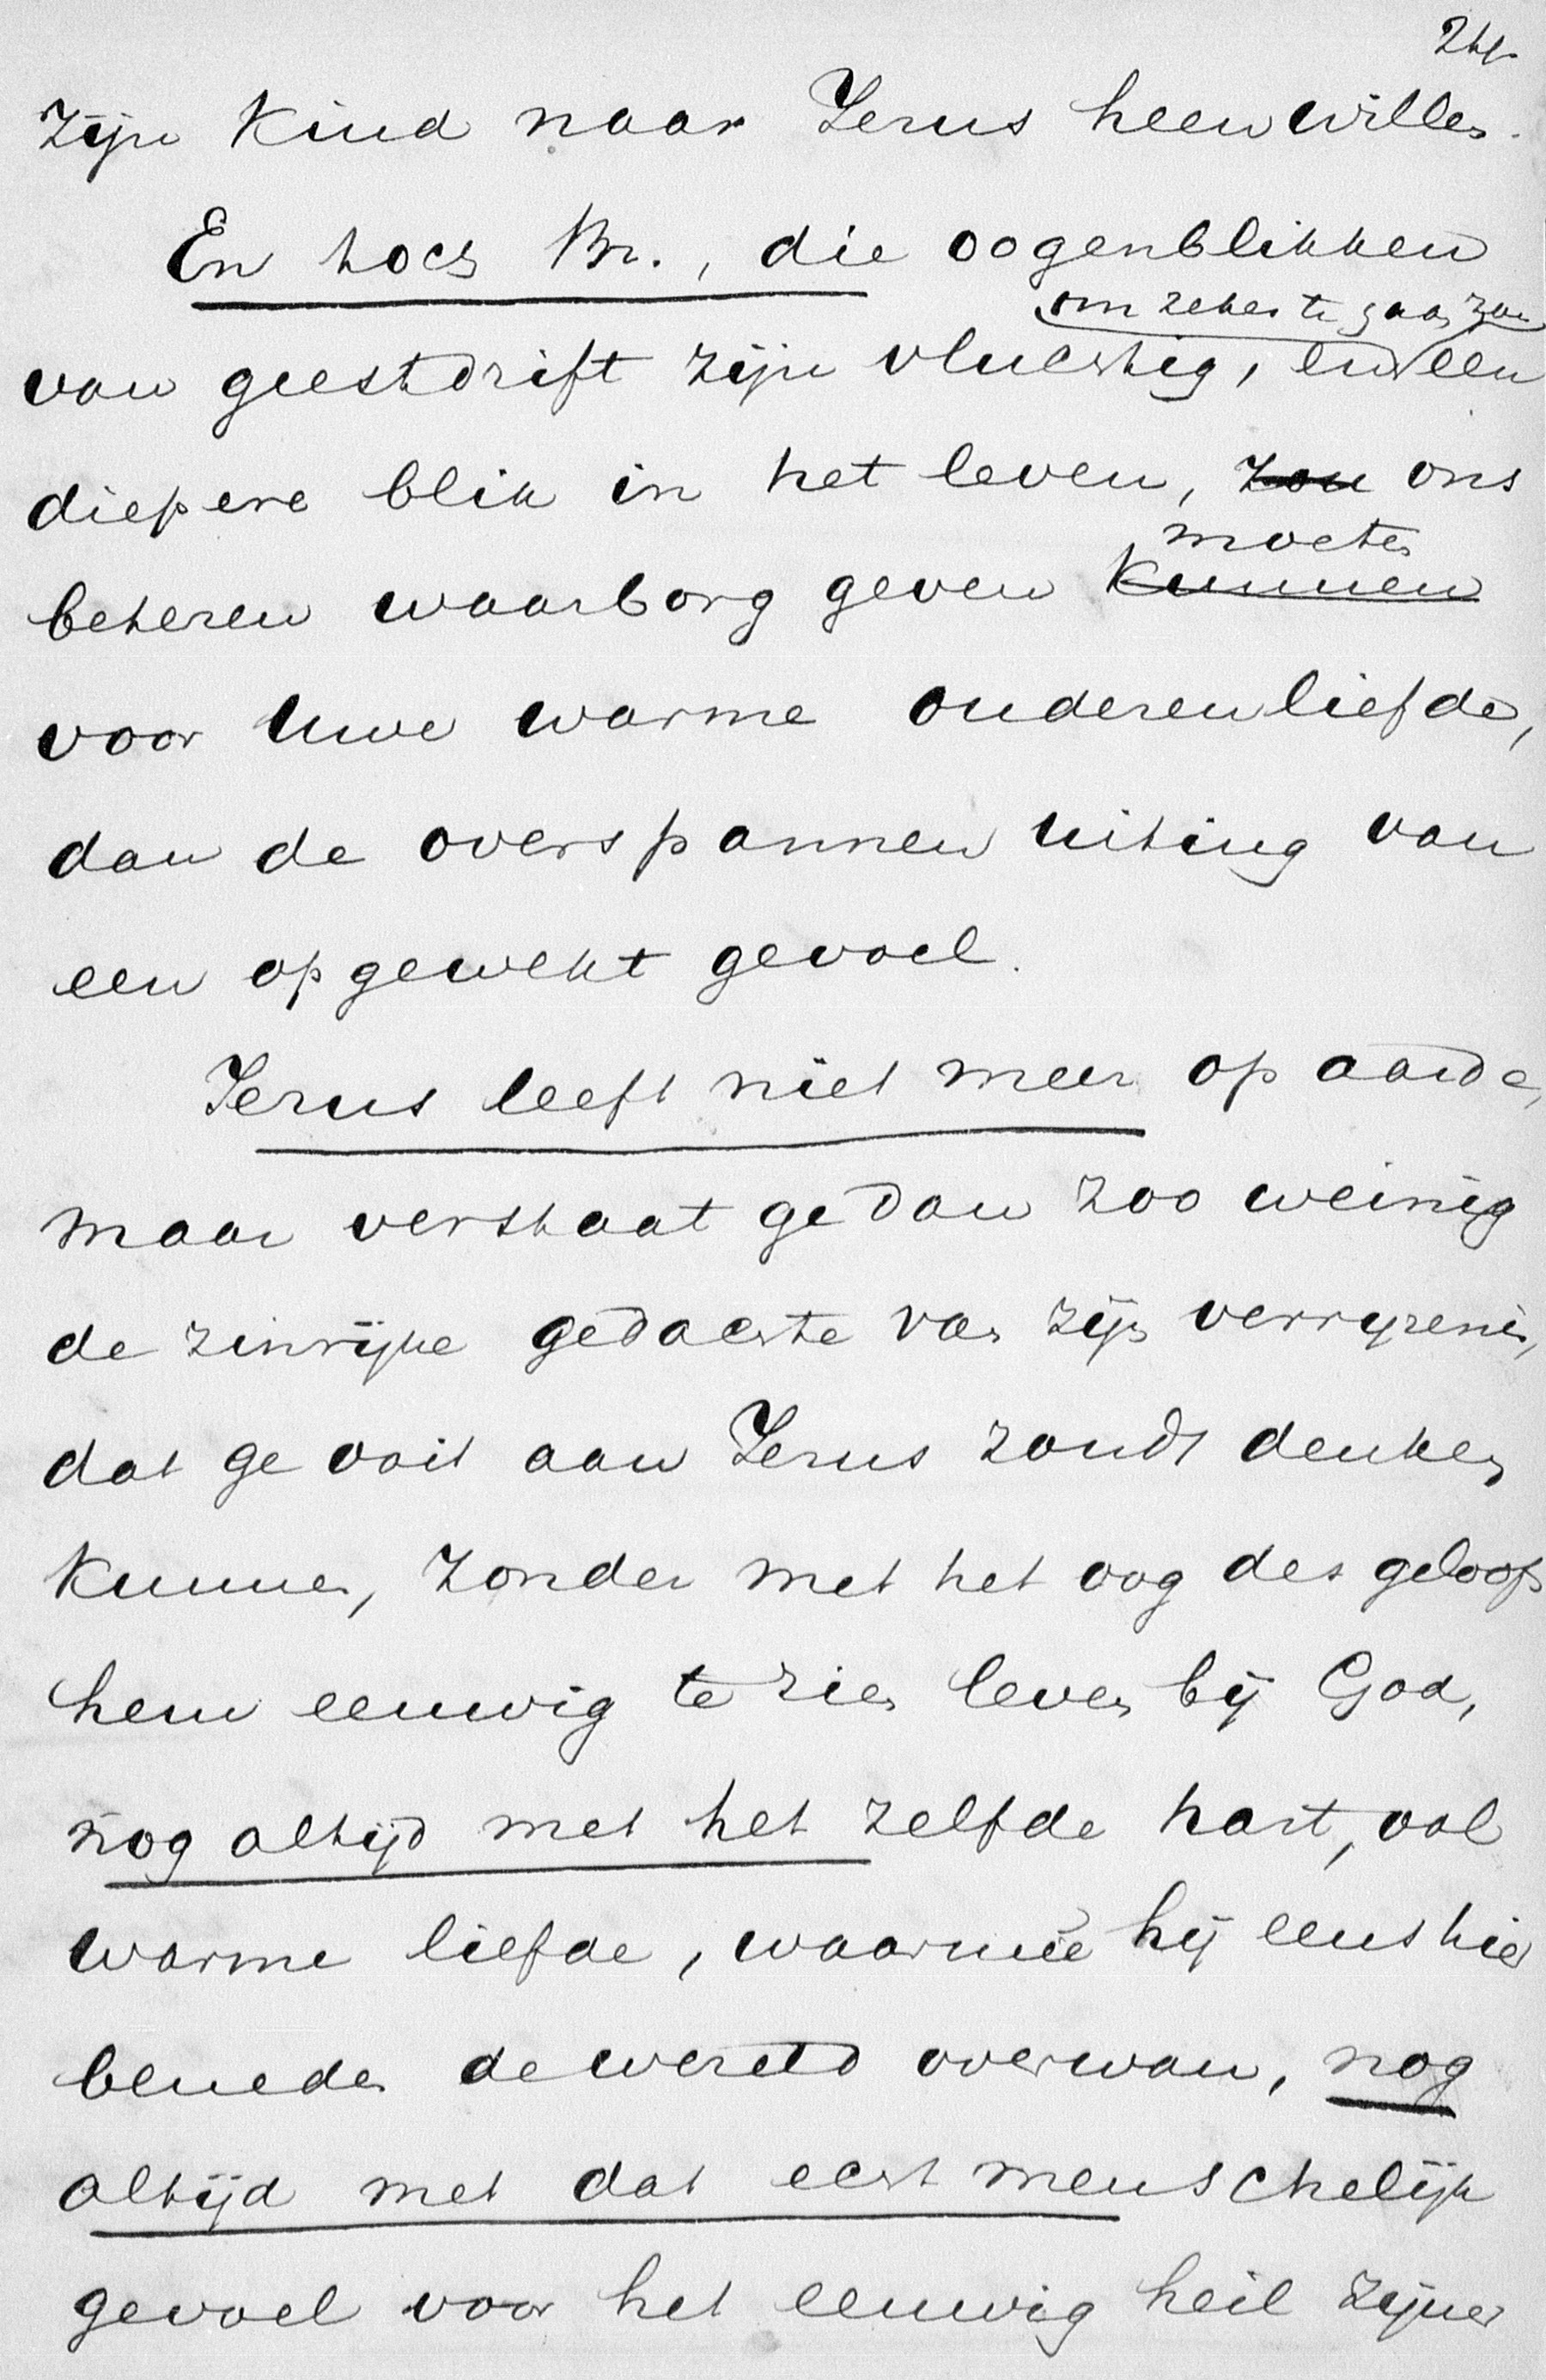 zijn kind naar Jezus heen willen.
En toch Br., die oogenblikken
om zeker te gaan zou
van geestdrift zijn vluchtig, en een
diepere blik in het leven, zou ons
moeten
beteren waarborg geven kunnen
voor Uwe warme ouderenliefde,
dan de overspannen uiting van
een opgewekt gevoel.
Jezus leeft niet meer op aarde,
maar verstaat ge dan zoo weinig
de zinrijke gedachte van zijn verryzenis,
dat ge ooit aan Jezus zoudt denken
kunnen, zonder met het oog des geloofs
hem eeuwig te zien leven bij God,
nog altijd met het zelfde hart, vol
warme liefde, waarmeê hij eens hier
beneden de wereld overwon, nog
altijd met dat echt menschelijk
gevoel voor het eeuwig heil zijner